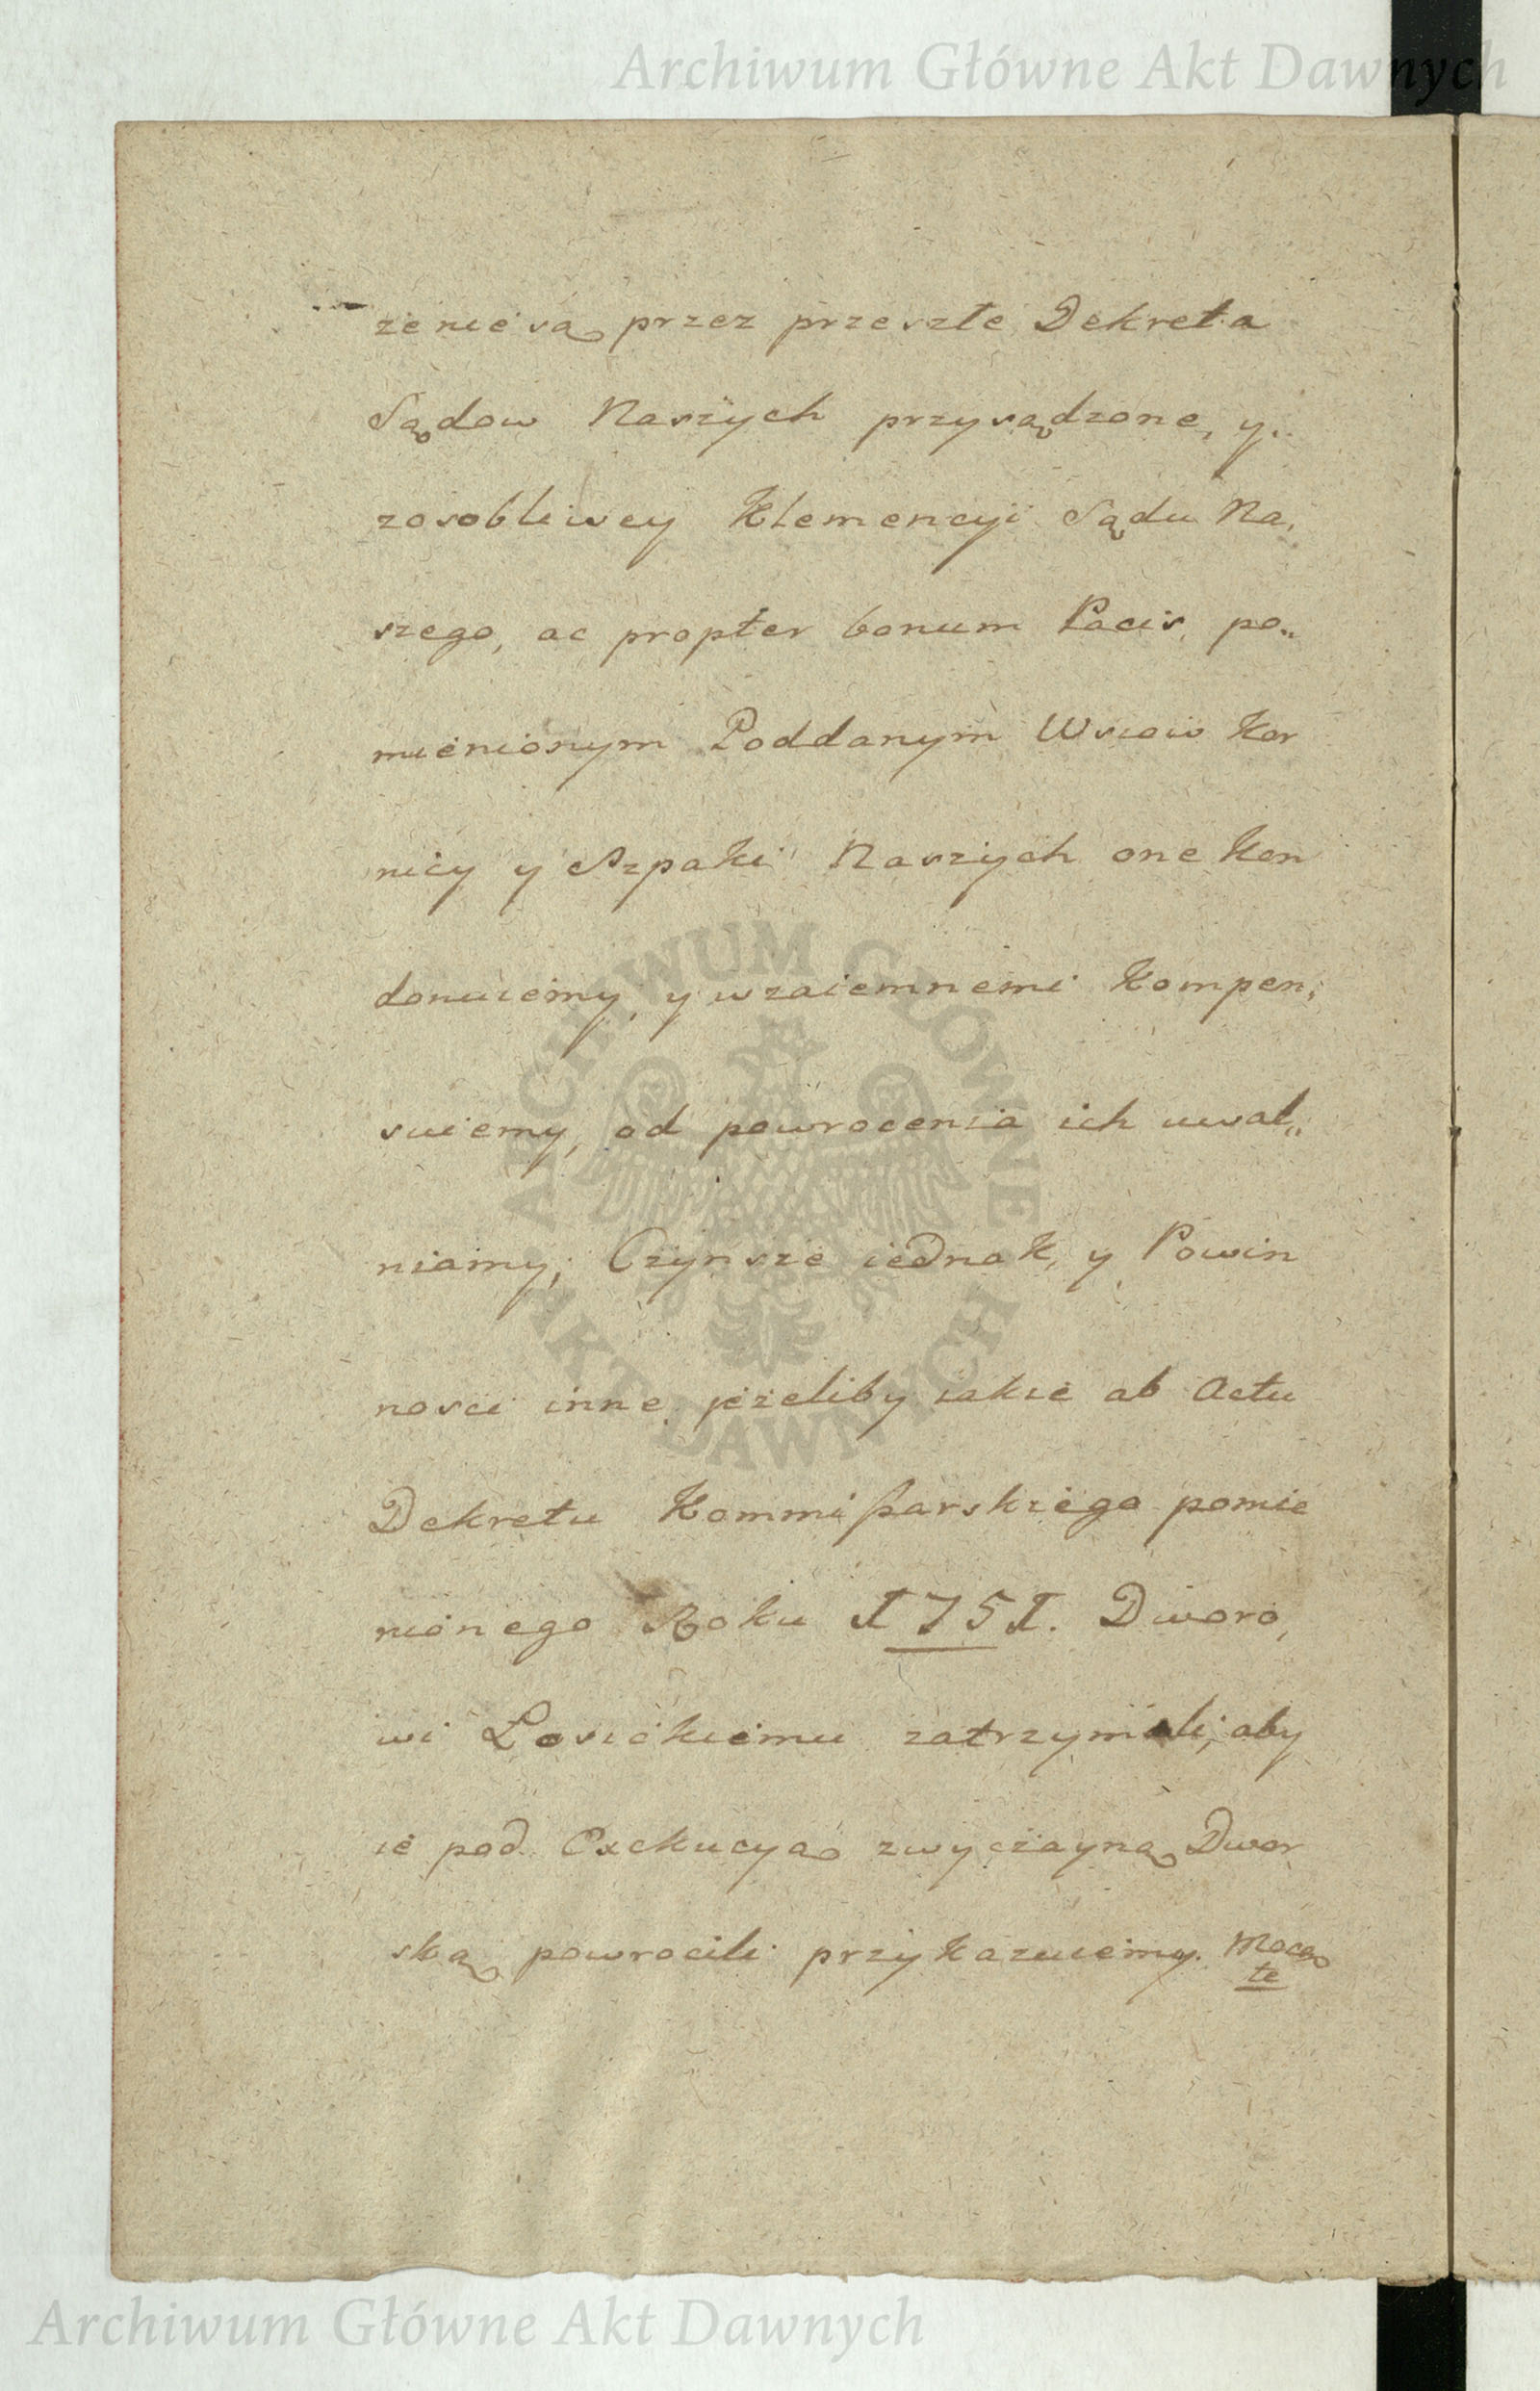 Archiwum Główne Akt Dawnych
że nie są przez przeszłe Dekreta
Sądow Naszych przysądzone, y
zosobliwey Klemencyi Sądu Na,
szego, ac propter bonum Pacis, po„
mienionym Poddanym Wsiow Kor
nicy y Szpaki Naszych one kon
donuiemy, y wzaiemnemi kompen,
suiemy, od powrocenia ich uwal„
niamy; Czynsze iednak, y Powin
nosci inne, jeżeliby iakie ab Actu
Dekretu Kommißarskiego pomie
nionego Roku 1751. Dworo,
wi Łosickiemu zatrzymali, aby
ie pod Exekucyą zwyczayną Dwor
ską powrocili przykazuiemy. Mocą
te
ARCHIWUM GŁÓWNE
AKT DAWNYCH
Archiwum Główne Akt Dawnych